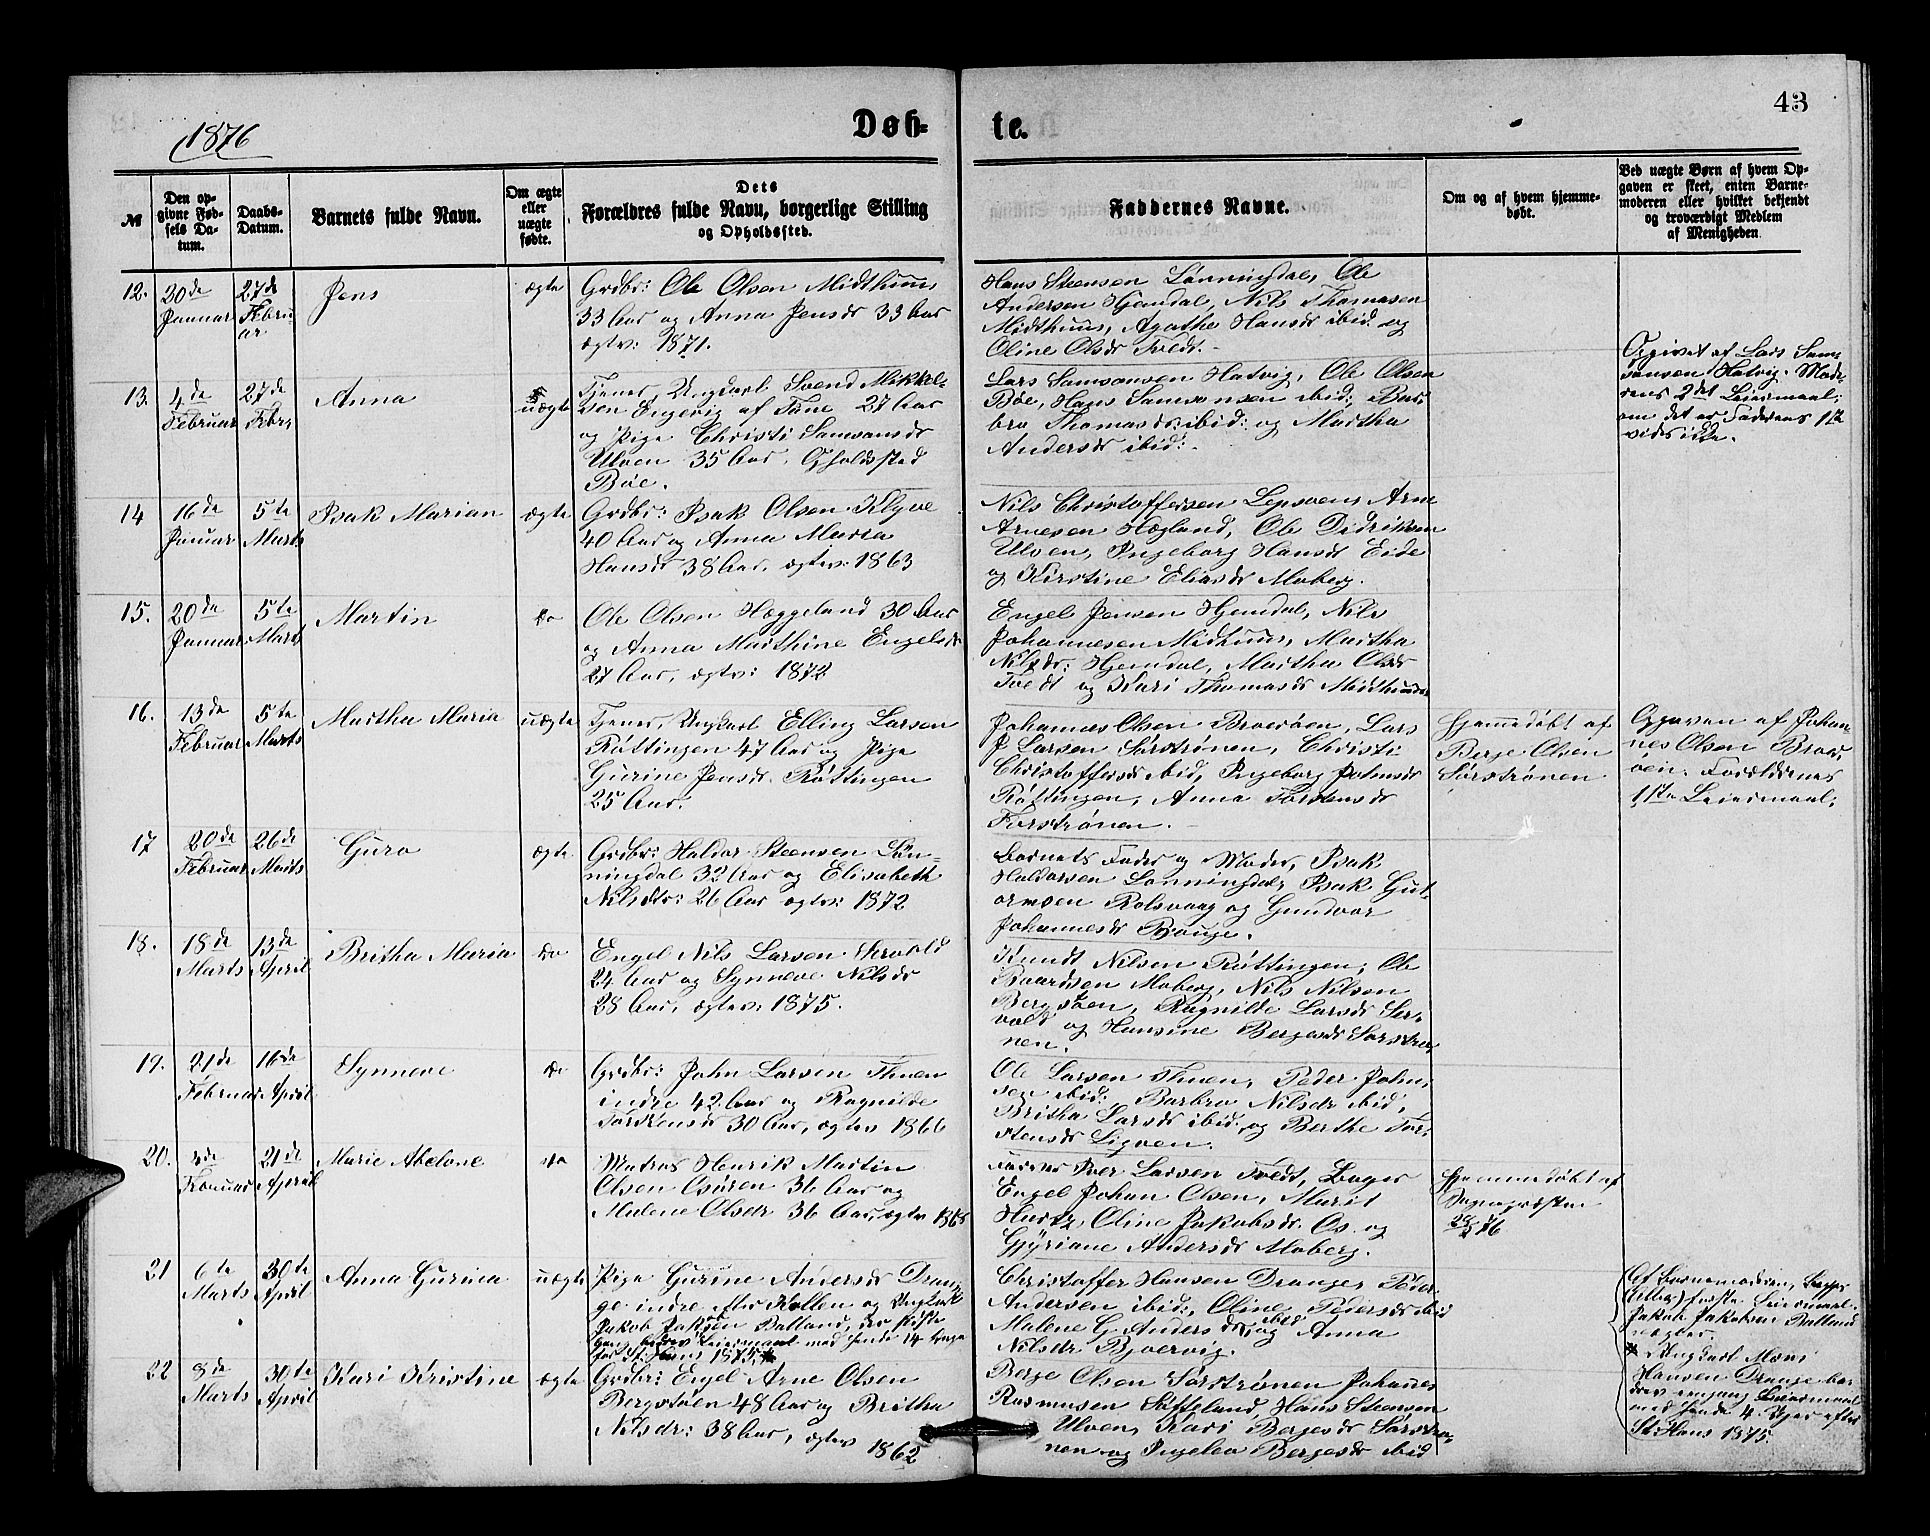 1876
Døb-
te.
43
№
Den op-
givne Fød-
sels Da-
tum.
Daabs-
Datum.
Barnets fulde Navn.
Om ægte
eller
uægte
fødte.
Dets
Forældres fulde Navn, borgerlige Stilling
og Opholdssted.
Faddernes Navne.
Om og af hvem hjemme-
døbt.
Ved uægte Børn af hvem Op-
gaven er skeet, enten Barne-
moderen eller hvilket bekjendt
og troværdigt Medlem
af Menigheden.
12.
20de
Januar
27de
Febru-
ar
Jens
ægte
Grdbr: Ole Olsen Midthuun,
33 Aar og Anna Jensdr 33 Aar
ægtev: 1871.
Hans Steensen Lønningdal, Ole
Andersen Hjemdal, Nils Thomasen
Midthuus, Agatha Hansdr ibid. og
Oline Olsdr Tvedt.
13.
4de
Februar
27de
Febr.
Anna
uægte
Tjener, Ungkarl Svend Mikkel-
sen Engevig af Tøne 27 Aar
og Pige Christi Samsonsdr
Ulven 35 Aar, Opholdssted
Bøe.
Lars Samsonsen Hatvig, Ole Olsen
Bøe, Hans Samsonsen ibid:, Bar-
bro Thomasdr: ibid: og Martha
Andersdr ibid:.
Opgivet af Lars Sam-
sonsen Hatvig. Mode-
rens 2det Leiermaal;
om det er Faderens 1ste
vides ikke.
14
16de
Januar
5te
Marts
Isak Marian
ægte
Grdbr: Isak Olsen Klyve
40 Aar og Anna Maria
Hansdr 38 Aar, ægtev: 1863
Nils Christoffersen Lepsøen, Arne
Arnesen Hægland, Ole Didriksen
Ulven, Ingeborg Hansdr Eide
og Kirstine Eliasdr Moberg.
15.
20de
Januar
5te
Marts
Martin
do
Ole Olsen Hæggeland 30 Aar
og Anna Marthine Engelsdr
27 Aar, ægtev: 1872
Engel Jensen Hjemdal, Nils
Johannesen Midthuus, Martha
Nilsdr: Hjemdal, Martha Olsdr
Tvedt og Kari Thomasdr Midthuus
16.
13de
Februar
5te
Marts
Martha Maria
uægte
Tjener, Ungkarl Elling Larsen
Røttingen 47 Aar og Pige
Gurine Jensdr. Røttingen
25 Aar.
Johannes Olsen Broerøen, Lars
J Larsen Sørstrønen, Christi
Christoffersdr ibid, Ingeborg Johnsdr
Røttingen, Anna Torstensdr
Forstrønen.
Hjemmedøbt af
Berge Olsen
Sørstrønen
Opgaven af Johan-
nes Olsen Broer-
øen. Forældrenes
1ste Leiermaal.
17
20de
Februar
26de
Marts
Guro
ægte
Grdbr: Haldor Steensen Løn-
ningdal 32 Aar og Elisabeth
Nilsdtr: 26 Aar ægtev: 1872
Barnets Fader og Moder, Isak
Haldorsen Lønningdal, Isak Gut-
ormsen Rolsvaag og Gundvor
Johannesdr Bouge.
18.
18de
Marts
13de
April
Britha Maria
do
Engel Nils Larsen Servold
24 Aar og Synneve Nilsdr
28 Aar, ægtev: 1875.
Knudt Nilsen Røttingen, Ole
Baardsen Moberg, Nils Nilsen
Bergstøen, Ragnilde Larsdr Ser-
vold og Hansine Bergesdr Sørstrø-
nen.
19.
21de
Februar
16de
April
Synneve
do
Grdbr: John Larsen Thuen
indre 42 Aar og Ragnilde
Torstensdr 30 Aar, ægtev 1866
Ole Larsen Thuen, Peder John-
sen ibid: Barbro Nilsdr ibid,
Britha Larsdr ibid. og Berthe Tor-
stensdr Ligven.
20.
21de
April
Marie Abelone
do
Matros Henrik Martin
Olsen Osøren 36 Aar og
Malene Olsdr 36 Aar, ægtev 1868
Iver Larsen Tvedt, Bager
Engel Johan Olsen, Marit
Hurtz, Oline Jakobsdr. Os. og
Gjyriane Andersdr Moberg.
Hjemmedøbt af
Sognepræsten
21
6te
Marts
30te
April
Anna Gurina
uægte
Pige Gurine Andersdr Dran-
ge indre efter Kollen og Ungkarl
Jakob Jakobsen Balland, der
Leiermaal med hende 14 Dage
før St: Hans 1875.
Christoffer Hansen Drange, Peder
Andersen ibid:, Oline Pedersdr ibid
Malene G. Andersdr, ibid og Anna
Nilsdr Bjørvig.
Af Barnemoderen,
første Leiermaal.
Jakob Jakobsen Balland
nægter.
* Ungkarl Mons
Hansen Drange har
havt engang Leiermaal
med hende 4 Uger efter
St: Hans 1875.
22
8de
Marts
30te
April
Kari Kristine
ægte
Grdbr: Engel Arne Olsen
Bergstøen 48 Aar og Britha
Nilsdr: 38 Aar, ægtev 1862
Berge Olsen Sørstrønen Johannes
Rasmusen Søfteland, Hans Steensen
Ulven, Kari Bergesdr Sørstrø-
nen og Ingelea Bergesdr ibid